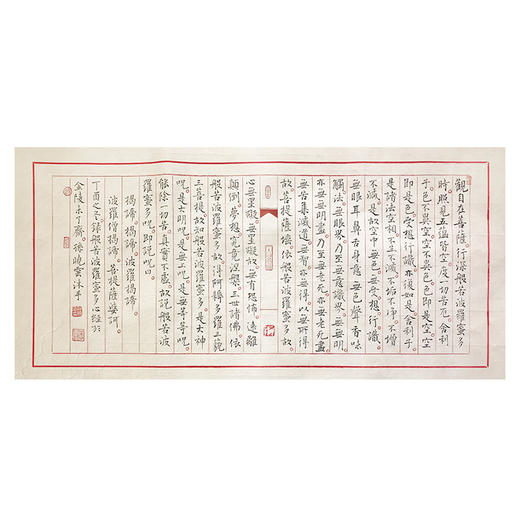 觀自在菩薩。行深般若波羅蜜多
時。照見五蘊皆空。度一切苦厄。舍利
子。色不異空。空不異色。色即是空。空
即是色。受想行識。亦復如是。舍利子。
是諸法空相。不生不滅。不垢不淨。不增
不減。是故空中無色。無受想行識。
無眼耳鼻舌身意。無色聲香味
觸法。無眼界。乃至無意識界。無無明。
亦無無明盡。乃至無老死。亦無老死盡。
無苦集滅道。無智亦無得。以無所得
故。菩提薩埵。依般若波羅蜜多故。
心無罣礙。無罣礙故。無有恐怖。遠離
顛倒夢想。究竟涅槃。三世諸佛。依
般若波羅蜜多故。得阿耨多羅三藐
三菩提。故知般若波羅蜜多。是大神
呪。是大明呪。是無上呪。是無等等呪。
能除一切苦。真實不虛。故說般若波
羅蜜多呪。即說呪曰
揭諦。揭諦。波羅揭諦。
波羅僧揭諦。菩提薩婆訶。
丁酉之冬錄般若波羅蜜多心經於
金陵未了齋孫曉雲沐手